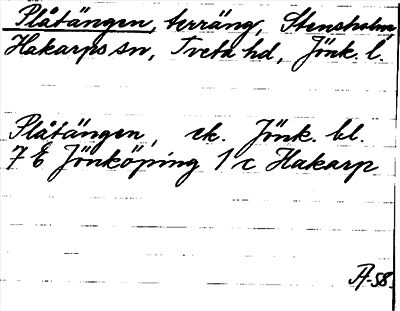 Plåtängen, terräng, Stensholm,
Hakarps sn, Tveta hd, Jönk. l.
Plåtängen, ek. Jönk. bl.
7 E Jönköping 1 c Hakarp
Å-58.